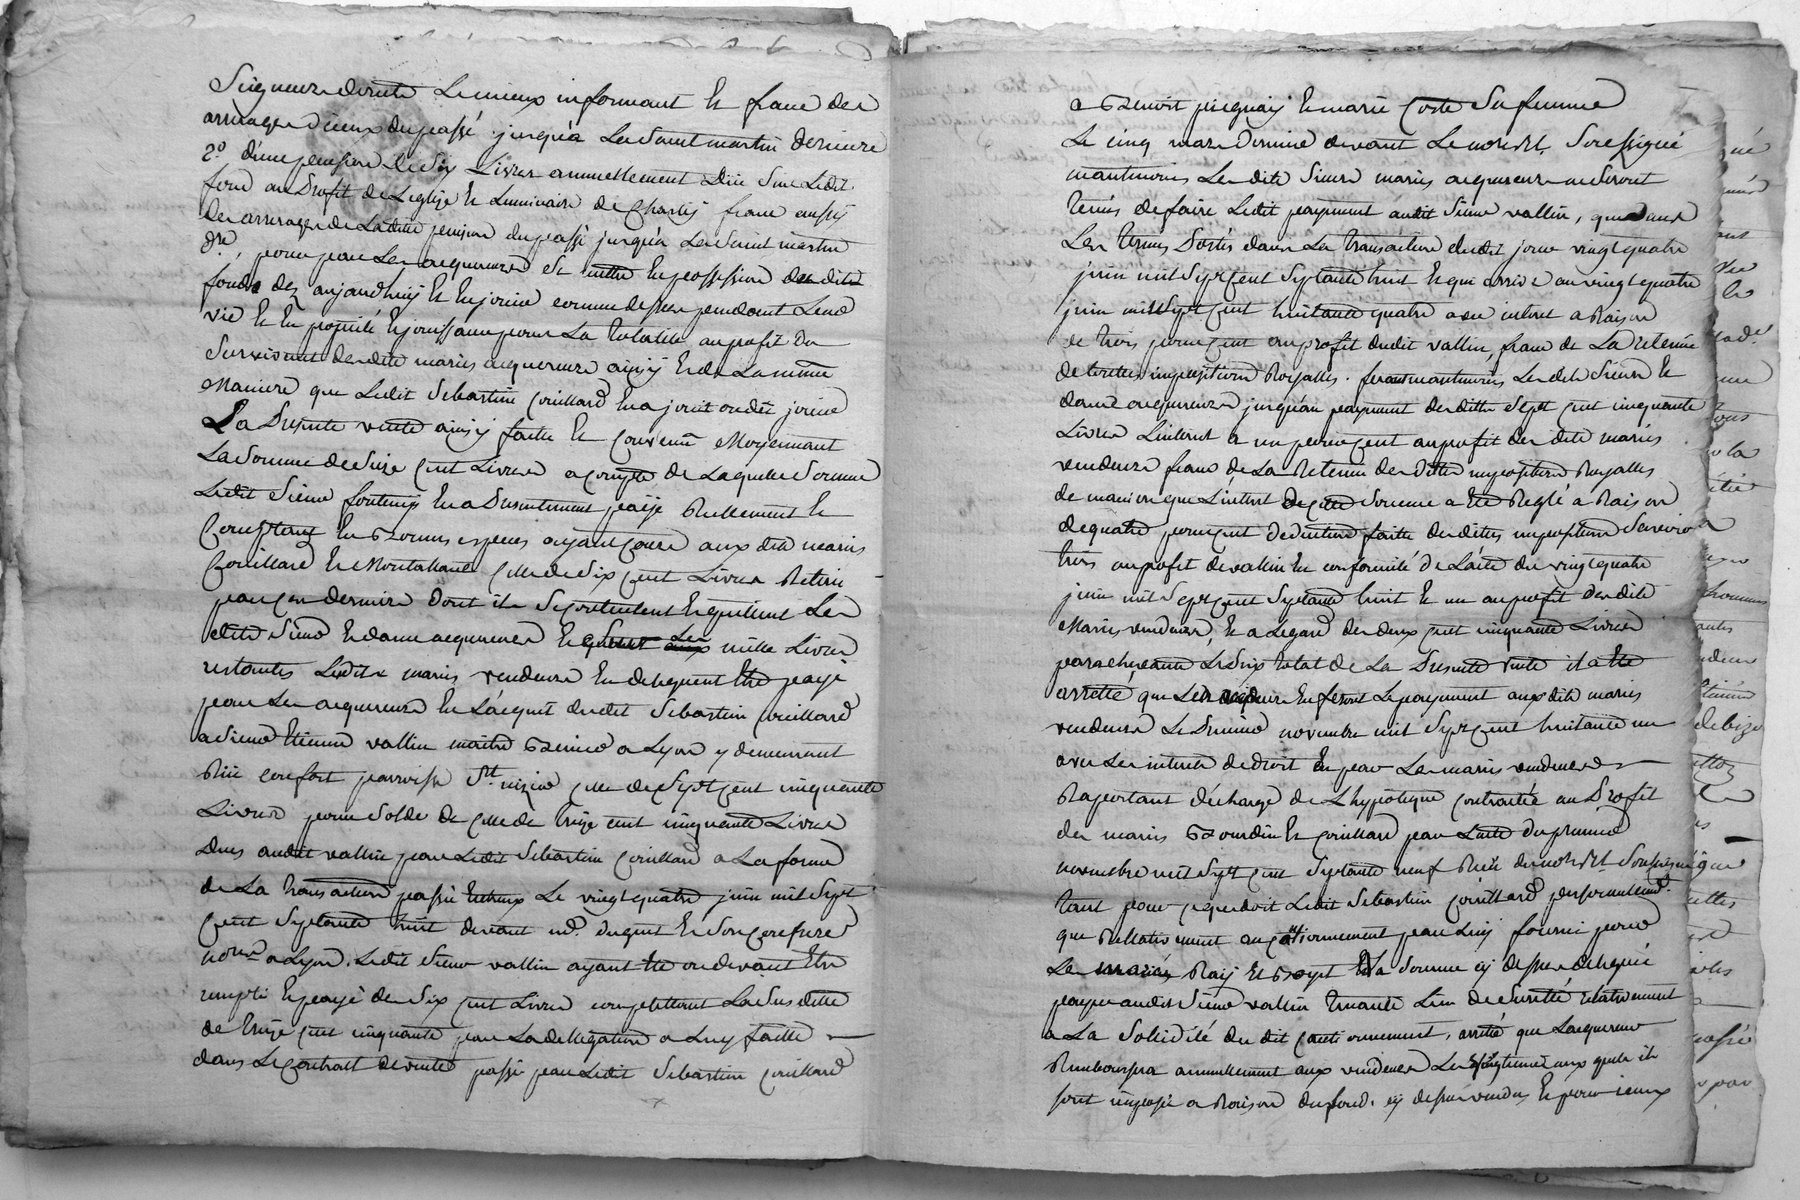 Seigneurs directs Le mieux informant et franc des
arrerages d'iceux du passé jusqu'a La Saint martin derniere
2.° d'une pension de Six Livres annuellement düe Sur Ledit
fond au Profit de L'eglise et Luminaire de Charly franc aussy
des arrerages de Laditte pension du passé jusqu'a La Saint martin
dre, pour par Les acquereurs Se mettre En possession desdits
fonds dez aujourdhuy Et En jouir comme dessus pendant Leur
vie Et En proprieté Et jouissance pour La totalité au profit du
Survivant desdits mariés acquereurs ainsy Et de La même
Maniere que Ledit Sebastien Coüillard En a joüit ou dût joüir
La Presente vente ainsy faitte Et Convenüe Moyennant
La Somme de Seize Cent Livres a compte de Laquelle Somme
Ledit Sieur Fontenis En a Presentement payé Reellement Et
Comptant En Bonnes especes ayant Cours aux dits mariés
Coüillard Et Montalland Celle de Six Cent Livres Retiré
par Ces derniers Dont ils Se contentent Et quittent Les
dits Sieur Et dame acquereurs Et quant aux mille Livres
restantes Lesdits mariés vendeurs En deleguent Etre payé
par Les acquereurs En L'acquit dudit Sebastien Coüillard
a Sieur Etienne vallin maitre a Lyon y demeurant
Rüe confort parroisse St. nizier Celle de Sept Cent cinquante
Livres pour Solde de Celle de treize cent cinquante Livres
Dües audit vallin par Ledit Sebastien Coüillard a La forme
de La transaction passée Entreux Le vingt quatre juin mil Sept
Cent Septante huit devant me. Duguet Et Son Confrere
nores a Lyon. Ledit Sieur vallin ayant Eté ou devant Etre
rempli Et payé de Six Cent Livres completant La Susditte
de treize Cent cinquante par La dellegation a Luy faitte
dans Le Contrat de vente passé par Ledit Sebastien Coüillard
a Benoit Et marie Coste Sa femme
Le cinq mars Dernier devant Le nore Rl. Soussigné
maintenus Les dits Sieurs mariés acquereurs ne Seront
tenus de faire Ledit payement audit Sieur vallin, que dans
Les termes Portés dans La transaction dudit jour vingt quatre
juin mil Sept Cent Septante huit Et qui arrive au vingt quatre
juin mil Sept Cent huitante quatre avec interet a Raison
de trois pour Cent au profit dudit vallin, franc de La retenüe
de touttes impositions Royalles. feront maintenus Les dits Sieur Et
dame acquereurs jusqu'au payement desdittes Sept Cent cinquante
Livres L'interet a un pour Cent au profit des dits mariés
vendeurs franc de La Retenüe desdittes impositions Royalles
de maniere que L'interet de cette Somme a Eté Reglé a Raison
de quatre pour Cent Deduction faitte desdittes impositions Scavoir
trois au profit de vallin En conformité de L'acte du vingt quatre
juin mil Sept Cent Septante huit Et un au profit desdits
Mariés vendeurs, Et a L'egard des deux Cent cinquante Livres
parachevant Le Prix total de La Presente vente il a Eté
arretté que Les acquereurs En feront Le payement aux dits mariés
vendeurs Le Premier novembre mil Sept Cent huitante un
avec Les interets de droit En par Les mariés vendeurs
Raportant décharge de L'hypoteque Contractée au Profit
des mariés Bourdin Et Coüillard par L'acte du premier
novembre mil Sept Cent Septante neuf Reçu du nore Rl. Soussigné
tant pour ce que doit Ledit Sebastien Coüillard personnellemt.
que Relativement au Cautionnement par Luy fourni pour
Les mariés Ray Et Et La Somme cy dessus deleguée
payer audit Sieur vallin tenante Lieu de Sureté relativement
a La Solidité du dit Cautionnement, arretté que L'acquereur
Remboursera annuellement aux vendeurs Les vingtiemes aux quels ils
sont imposés a Raison du fond. cy dessus vendus Et pour iceux